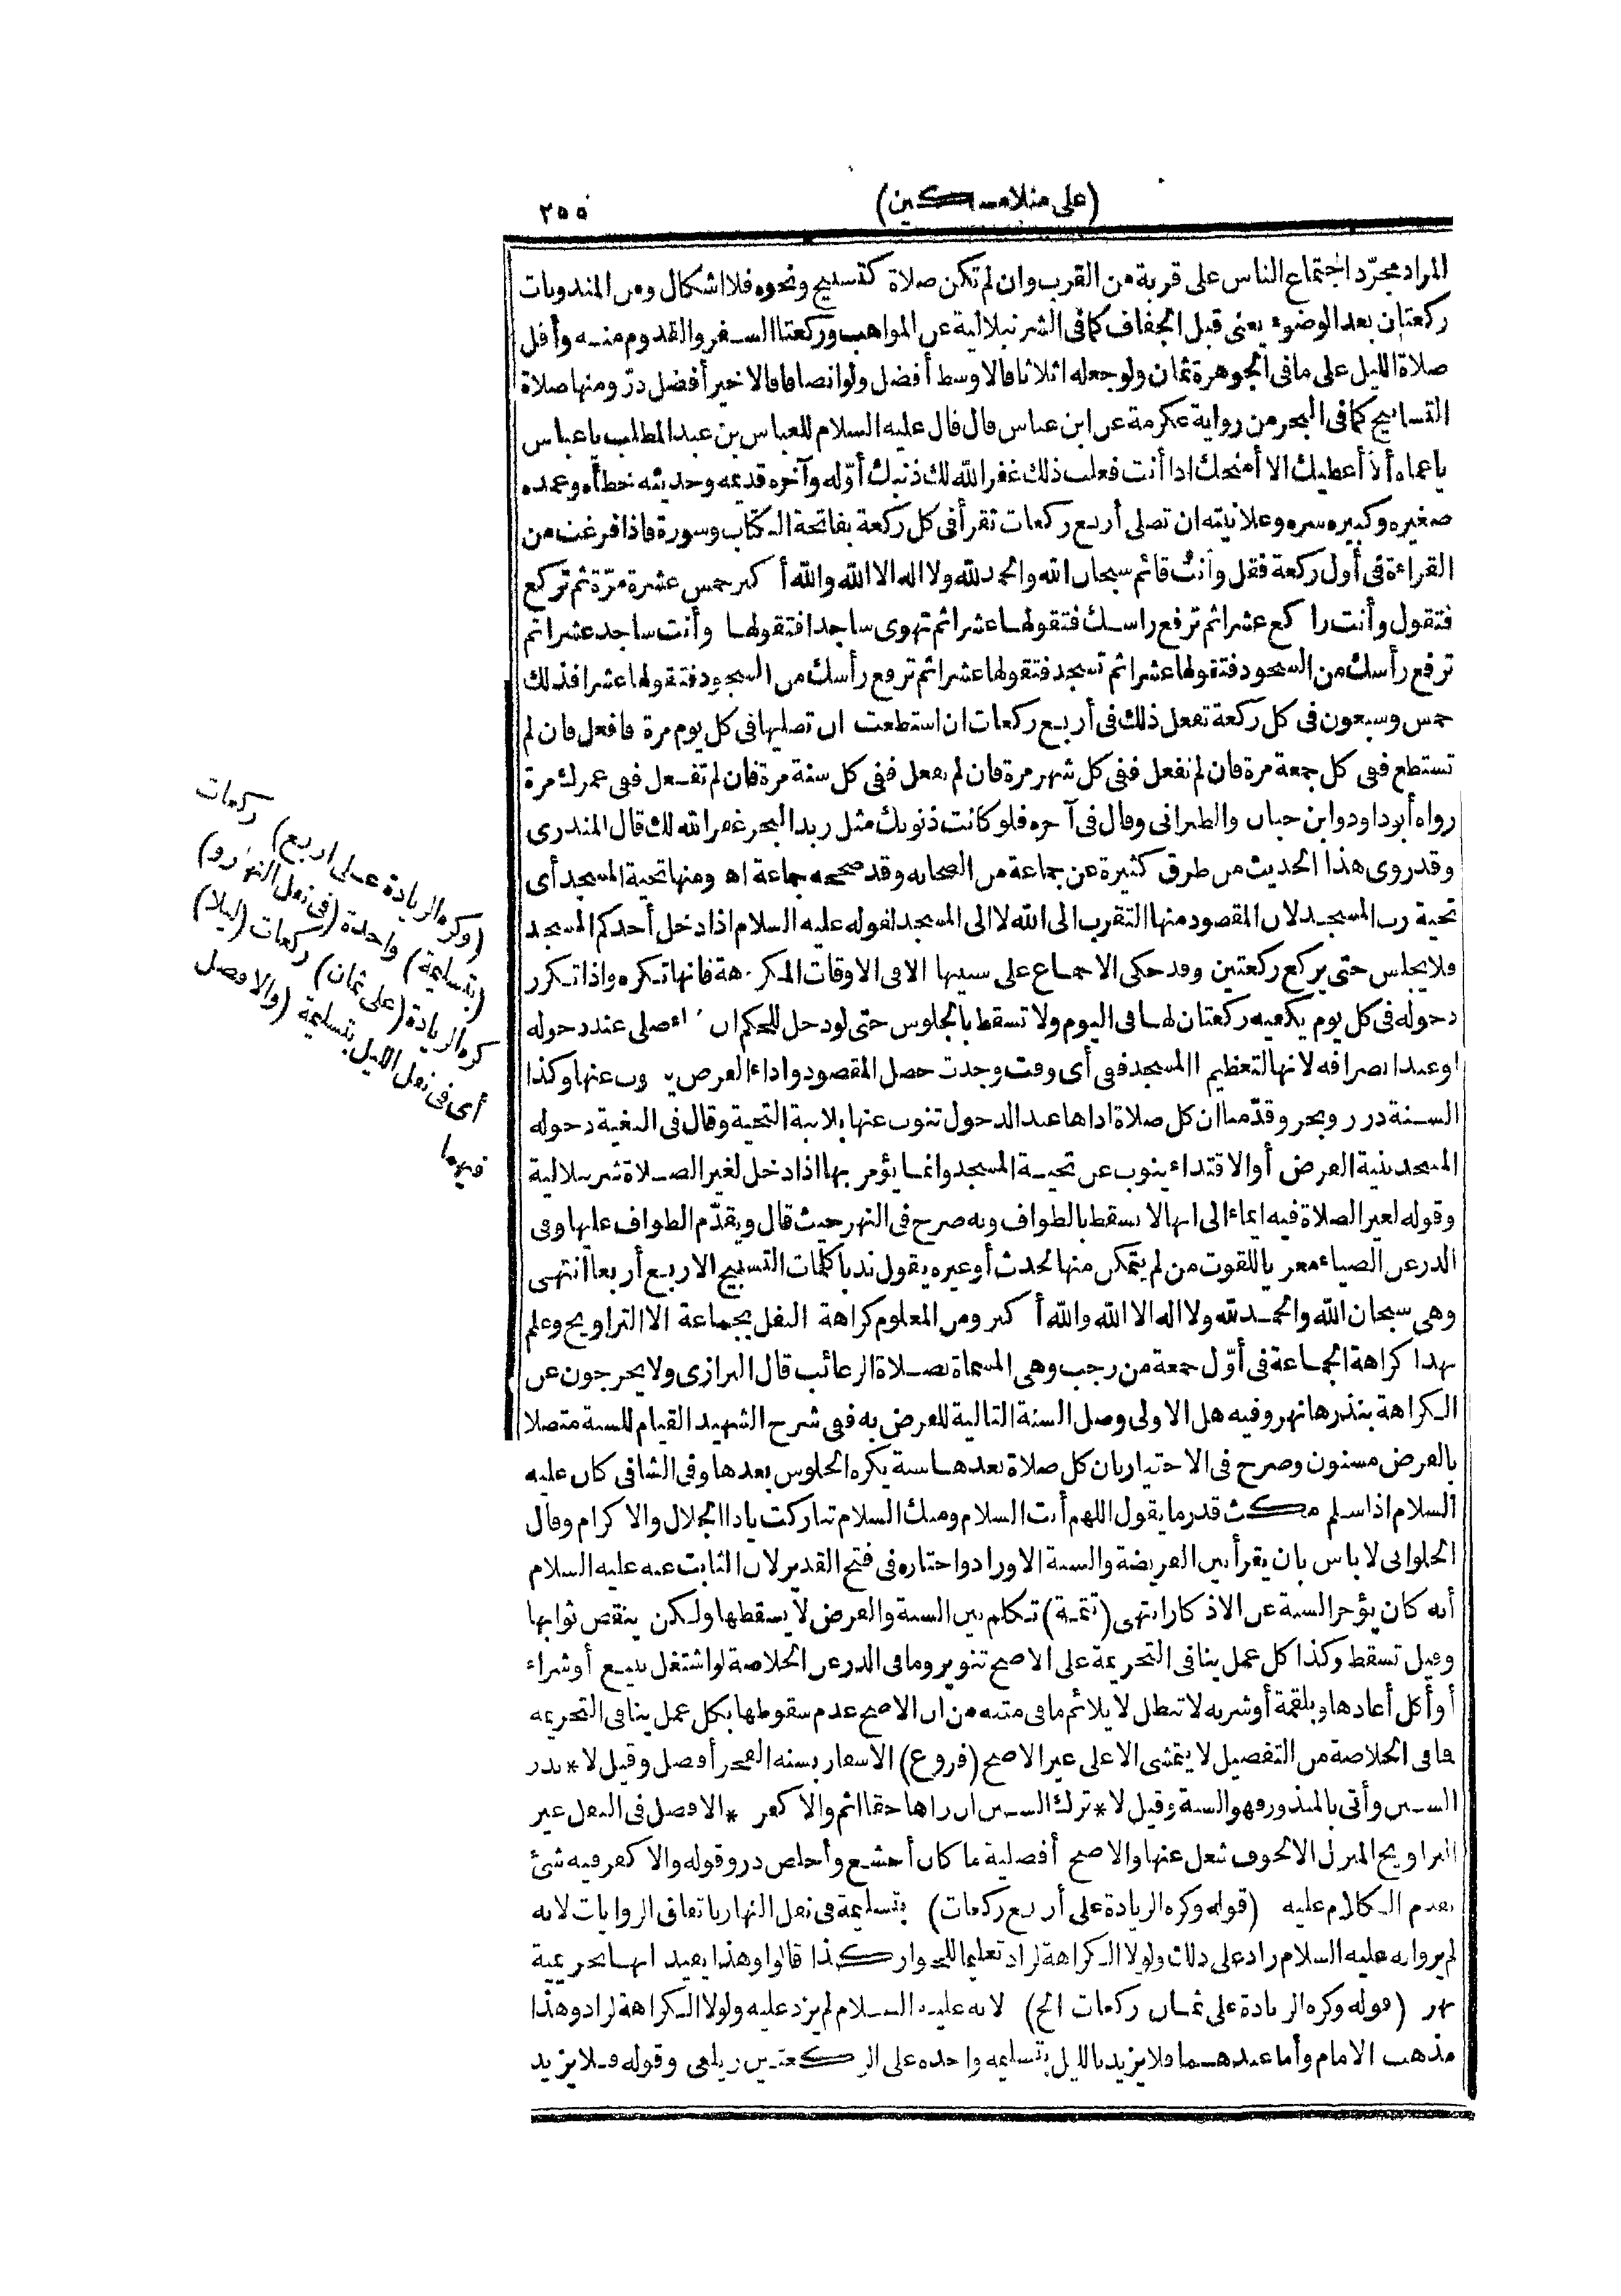 (على منلا مسكين)
٢٥٥
المراد مجرّد اجتماع الناس على قربة من القرب وان لم تكن صلاة كتسبيح ونحوه فلا اشكال ومن المندوبات
ركعتان بعد الوضوء يعنى قبل الجفاف كما فى الشرنبلالية عن المواهب وركعتا السفر والقدوم منه وأقل
صلاة الليل على ما فى الجوهرة ثمان ولو جعله اثلاثا فالاوسط أفضل ولو انصافا فالاخير أفضل درّ ومنها صلاة
التسابيح كما فى البحر من رواية عكرمة عن ابن عباس قال قال عليه السلام للعباس بن عبد المطلب يا عباس
يا عماه ألا أعطيك الا أمنحك اذا أنت فعلت ذلك غفر الله لك ذنبك أوّله وآخره قديمه وحديثه خطأه وعمده
صغيره وكبيره سره وعلانيته ان تصلى أربع ركعات تقرأ فى كل ركعة بفاتحة الكتاب وسورة فاذا فرغت من
القراءة فى أول ركعة فقل وأنت قائم سبحان الله والحمد لله ولا اله الا الله والله أكبر خمس عشرة مرّة ثم تركع
فتقول وأنت راكع عشرا ثم ترفع راسك فتقولها عشرا ثم تهوى ساجدا فتقولها وأنت ساجد عشرا ثم
ترفع رأسك من السجود فتقولها عشرا ثم تسجد فتقولها عشرا ثم ترفع رأسك من السجود فتقولها عشرا فذلك
خمس وسبعون فى كل ركعة تفعل ذلك فى أربع ركعات ان استطعت ان تصليها فى كل يوم مرة فافعل فان لم
تستطع ففى كل جمعة مرة فان لم تفعل ففى كل شهر مرة فان لم تفعل ففى كل سنة مرة فان لم تفعل ففى عمرك مرة
رواه أبو داود وابن حبان والطبرانى وقال فى آخره فلو كانت ذنوبك مثل زبد البحر غفر الله لك قال المنذرى
وقد روى هذا الحديث من طرق كثيرة عن جماعة من الصحابه وقد صححه جماعة اه ومنها تحية المسجد أى
تحية رب المسجد لان المقصود منها التقرب الى الله لا الى المسجد لقوله عليه السلام اذا دخل أحدكم المسجد
فلا يجلس حتى يركع ركعتين وقد حكى الاجماع على سنيها الا فى الاوقات المكروهة فانها تكره واذا تكرر
دخوله فى كل يوم يكفيه ركعتان لها فى اليوم ولا تسقط بالجلوس حتى لو دخل للحكم ان شاء صلى عند دخوله
او عند انصرافه لانها لتعظيم المسجد ففى أى وقت وجدت حصل المقصود واداء الفرض ينوب عنها وكذا
السنة درر وبحر وقدّمنا ان كل صلاة اداها عند الدخول تنوب عنها بلا نية التحية وقال فى البغية دخوله
المسجد بنية الفرض أو الاقتداء ينوب عن تحية المسجد وانما يؤمر بها اذا دخل لغير الصلاة شرنبلالية
وقوله لغير الصلاة فيه ايماء الى انها لا تسقط بالطواف وبه صرح فى النهر حيث قال ويقدّم الطواف عليها وفى
الدر عن الضياء معزيا للقوت من لم يتمكن منها لحدث أو غيره يقول ندبا كلمات التسبيح الاربع أربعا انتهى
وهى سبحان الله والحمد لله ولا اله الا الله والله أكبر ومن المعلوم كراهة النفل بجماعة الا التراويح وعلم
بهذا كراهة الجماعة فى أوّل جمعة من رجب وهى المسماة بصلاة الرغائب قال البزازى ولا يخرجون عن
الكراهة بنذرها نهر وفيه هل الاولى وصل السنة التالية للفرض به ففى شرح الشهيد القيام للسنة متصلا
بالفرض مسنون وصرح فى الاختيار بان كل صلاة بعدها سنة يكره الجلوس بعدها وفى الشافى كان عليه
السلام اذا سلم مكث قدر ما يقول اللهم أنت السلام ومنك السلام تباركت يا ذا الجلال والاكرام وقال
الحلوانى لا باس بان يقرأ بين الفريضة والسنة الاوراد واختاره فى فتح القدير لان الثابت عنه عليه السلام
أنه كان يؤخر السنة عن الاذكار انتهى (تتمة) تكلم بين السنة والفرض لا يسقطها ولكن ينقص ثوابها
وقيل تسقط وكذا كل عمل ينافى التحريمة على الاصح تنوير وما فى الدر عن الخلاصة لو اشتغل ببيع أو شراء
أو أكل أعادها وبلقمة أو شربه لا تبطل لا يلائم ما فى متنه من ان الاصح عدم سقوطها بكل عمل ينافى التحريمه
فما فى الخلاصة من التفصيل لا يتمشى الا على غير الاصح (فروع) الاسفار بسنه الفجر أفضل وقيل لا * نذر
السنن وأتى بالمنذور فهو السنة وقيل لا * ترك السنن ان راها حقا اثم والا كفر * الافضل فى النفل غير
التراويح المنزل الا لخوف شغل عنها والاصح أفضلية ما كان أخشع وأخلص در وقوله والا كفر فيه شئ
تقدم الكلام عليه (قوله وكره الزيادة على أربع ركعات) بتسليمة فى نفل النهار باتفاق الروايات لانه
لم يرو انه عليه السلام زاد على ذلك ولولا الكراهة لزاد تعليما للجواز كذا قالوا وهذا يفيد انها تحريمية
نهر (قوله وكره الزيادة على ثمان ركعات الخ) لانه عليه السلام لم يزد عليه ولولا الكراهة لزاد وهذا
مذهب الامام وأما عندهما فلا يزيد بالليل بتسليمه واحده على الركعتين زيلعى وقوله فلا يزيد
(وكره الزيادة على اربع) ركعات
(بتسليمة) واحدة (فى نفل النهار و)
كره الزيادة (على ثمان) ركعات (ليلا)
أى فى نفل الليل بتسليمة (والافضل
فيهما